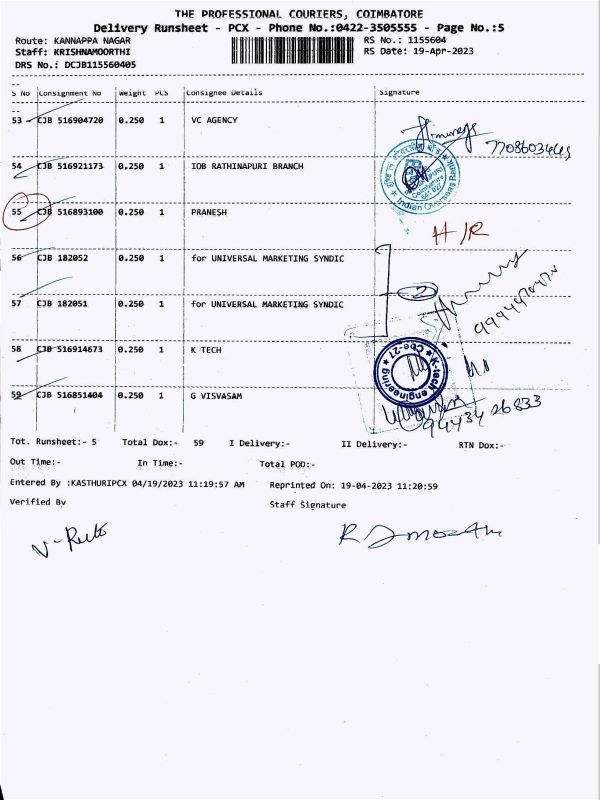 THE PROFESSIONAL COURIERS, COIMBATORE
Delivery Runsheet - PCX - Phone No.:0422-3505555 - Page No.:5
Route: KANNAPPA NAGAR RS No.: 1155604
Staff: KRISHNAMOORTHI RS Date: 19-Apr-2023
DRS No.: DCJB115560405
S No Consignment No Weight PCS Consignee Details Signature
53 CJB 516904720 0.250 1 VC AGENCY
54 CJB 516921173 0.250 1 IOB RATHINAPURI BRANCH
Indian Overseas Bank
55 CJB 516893100 0.250 1 PRANESH
H/R
56 CJB 182052 0.250 1 for UNIVERSAL MARKETING SYNDIC
2
57 CJB 182051 0.250 1 for UNIVERSAL MARKETING SYNDIC
58 CJB 516914673 0.250 1 K TECH
K-tech engineering Cbe-27
59 CJB 516851404 0.250 1 G VISVASAM
94434 26833
Tot. Runsheet:- 5 Total Dox:- 59 I Delivery:- II Delivery:- RTN Dox:-
Out Time:- In Time:- Total POD:-
Entered By :KASTHURIPCX 04/19/2023 11:19:57 AM Reprinted On: 19-04-2023 11:20:59
Verified By Staff Signature